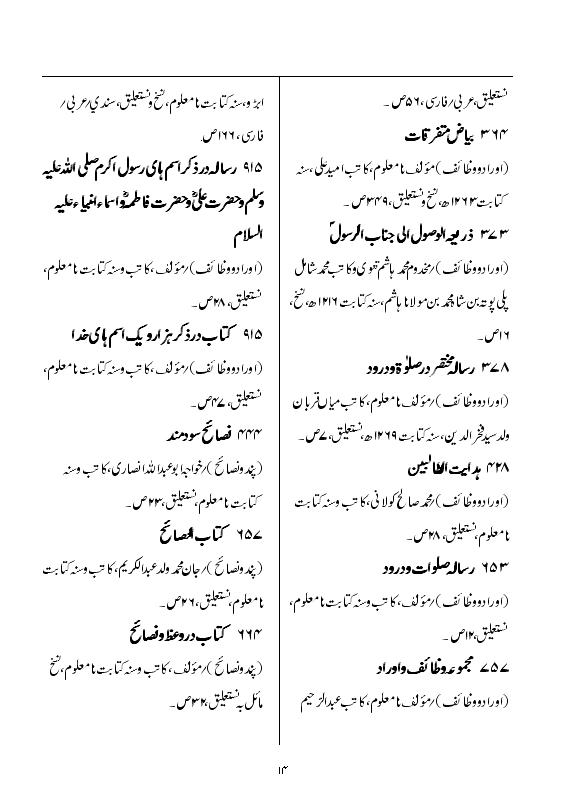 نستعلیق،عربی/فارسی،۵۶ص۔
۳۶۴ بیاض متفرقات
(اورادووظائف)/مؤلف نامعلوم،کاتب امیدعلی،سنہ
کتابت۱۲۶۳ھ،نسخ ونستعلیق،۳۴۹ص۔
۳۷۳ ذریعہ الوصول الی جناب الرسولؐ
(اورادووظائف)/مخدوم محمد ہاشم ٹھٹوی وکاتب محمد شامل
پلی پوتہ بن شاہ محمد بن مولانا ہاشم،سنہ کتابت ۱۲۱۶ھ،نسخ،
۱۶ص۔
۳۷۸ رسالہ مختصر درصلوٰۃ ودرود
(اورادووظائف)/مؤلف نامعلوم،کاتب میاں قربان
ولد سید فخر الدین،سنہ کتابت ۱۲۶۹ھ،نستعلیق،۷ص۔
۴۲۸ ہدایت الطالبین
(اورادووظائف)/محمد صالح کولانی،کاتب وسنہ کتابت
نامعلوم،نستعلیق،۲۸ص۔
۶۵۳ رسالہ صلوات ودرود
(اورادووظائف)/مؤلف،کاتب وسنہ کتابت نامعلوم،
نستعلیق،۱۲ص۔
۷۵۷ مجموعہ وظائف واوراد
(اورادووظائف)/مؤلف نامعلوم،کاتب عبدالرحیم
ابڑو،سنہ کتابت نامعلوم،نسخ ونستعلیق،سندی/عربی/
فارسی،۱۶۶ص۔
۹۱۵ رسالہ درذکر اسم ہای رسول اکرم صلی اللہ علیہ
وسلم وحضرت علیؓ وحضرت فاطمہؓ واسماء انبیاء علیہ
السلام
(اورادووظائف)/مؤلف،کاتب وسنہ کتابت نامعلوم،
نستعلیق،۲۸ص۔
۹۱۵ کتاب درذکر ہزارویک اسم ہای خدا
(اورادووظائف)/مؤلف،کاتب وسنہ کتابت نامعلوم،
نستعلیق،۴۷ص۔
۴۴۴ نصائح سودمند
(پندونصائح)/خواجہ ابوعبداللہ انصاری،کاتب وسنہ
کتابت نامعلوم،نستعلیق،۲۳ص۔
۶۵۷ کتاب النصائح
(پندونصائح)/جان محمد ولد عبدالکریم،کاتب وسنہ کتابت
نامعلوم،نستعلیق،۲۶ص۔
۶۶۴ کتاب دروعظ ونصائح
(پندونصائح)/مؤلف،کاتب وسنہ کتابت نامعلوم،نسخ
مائل بہ نستعلیق،۳۲ص۔
۱۴